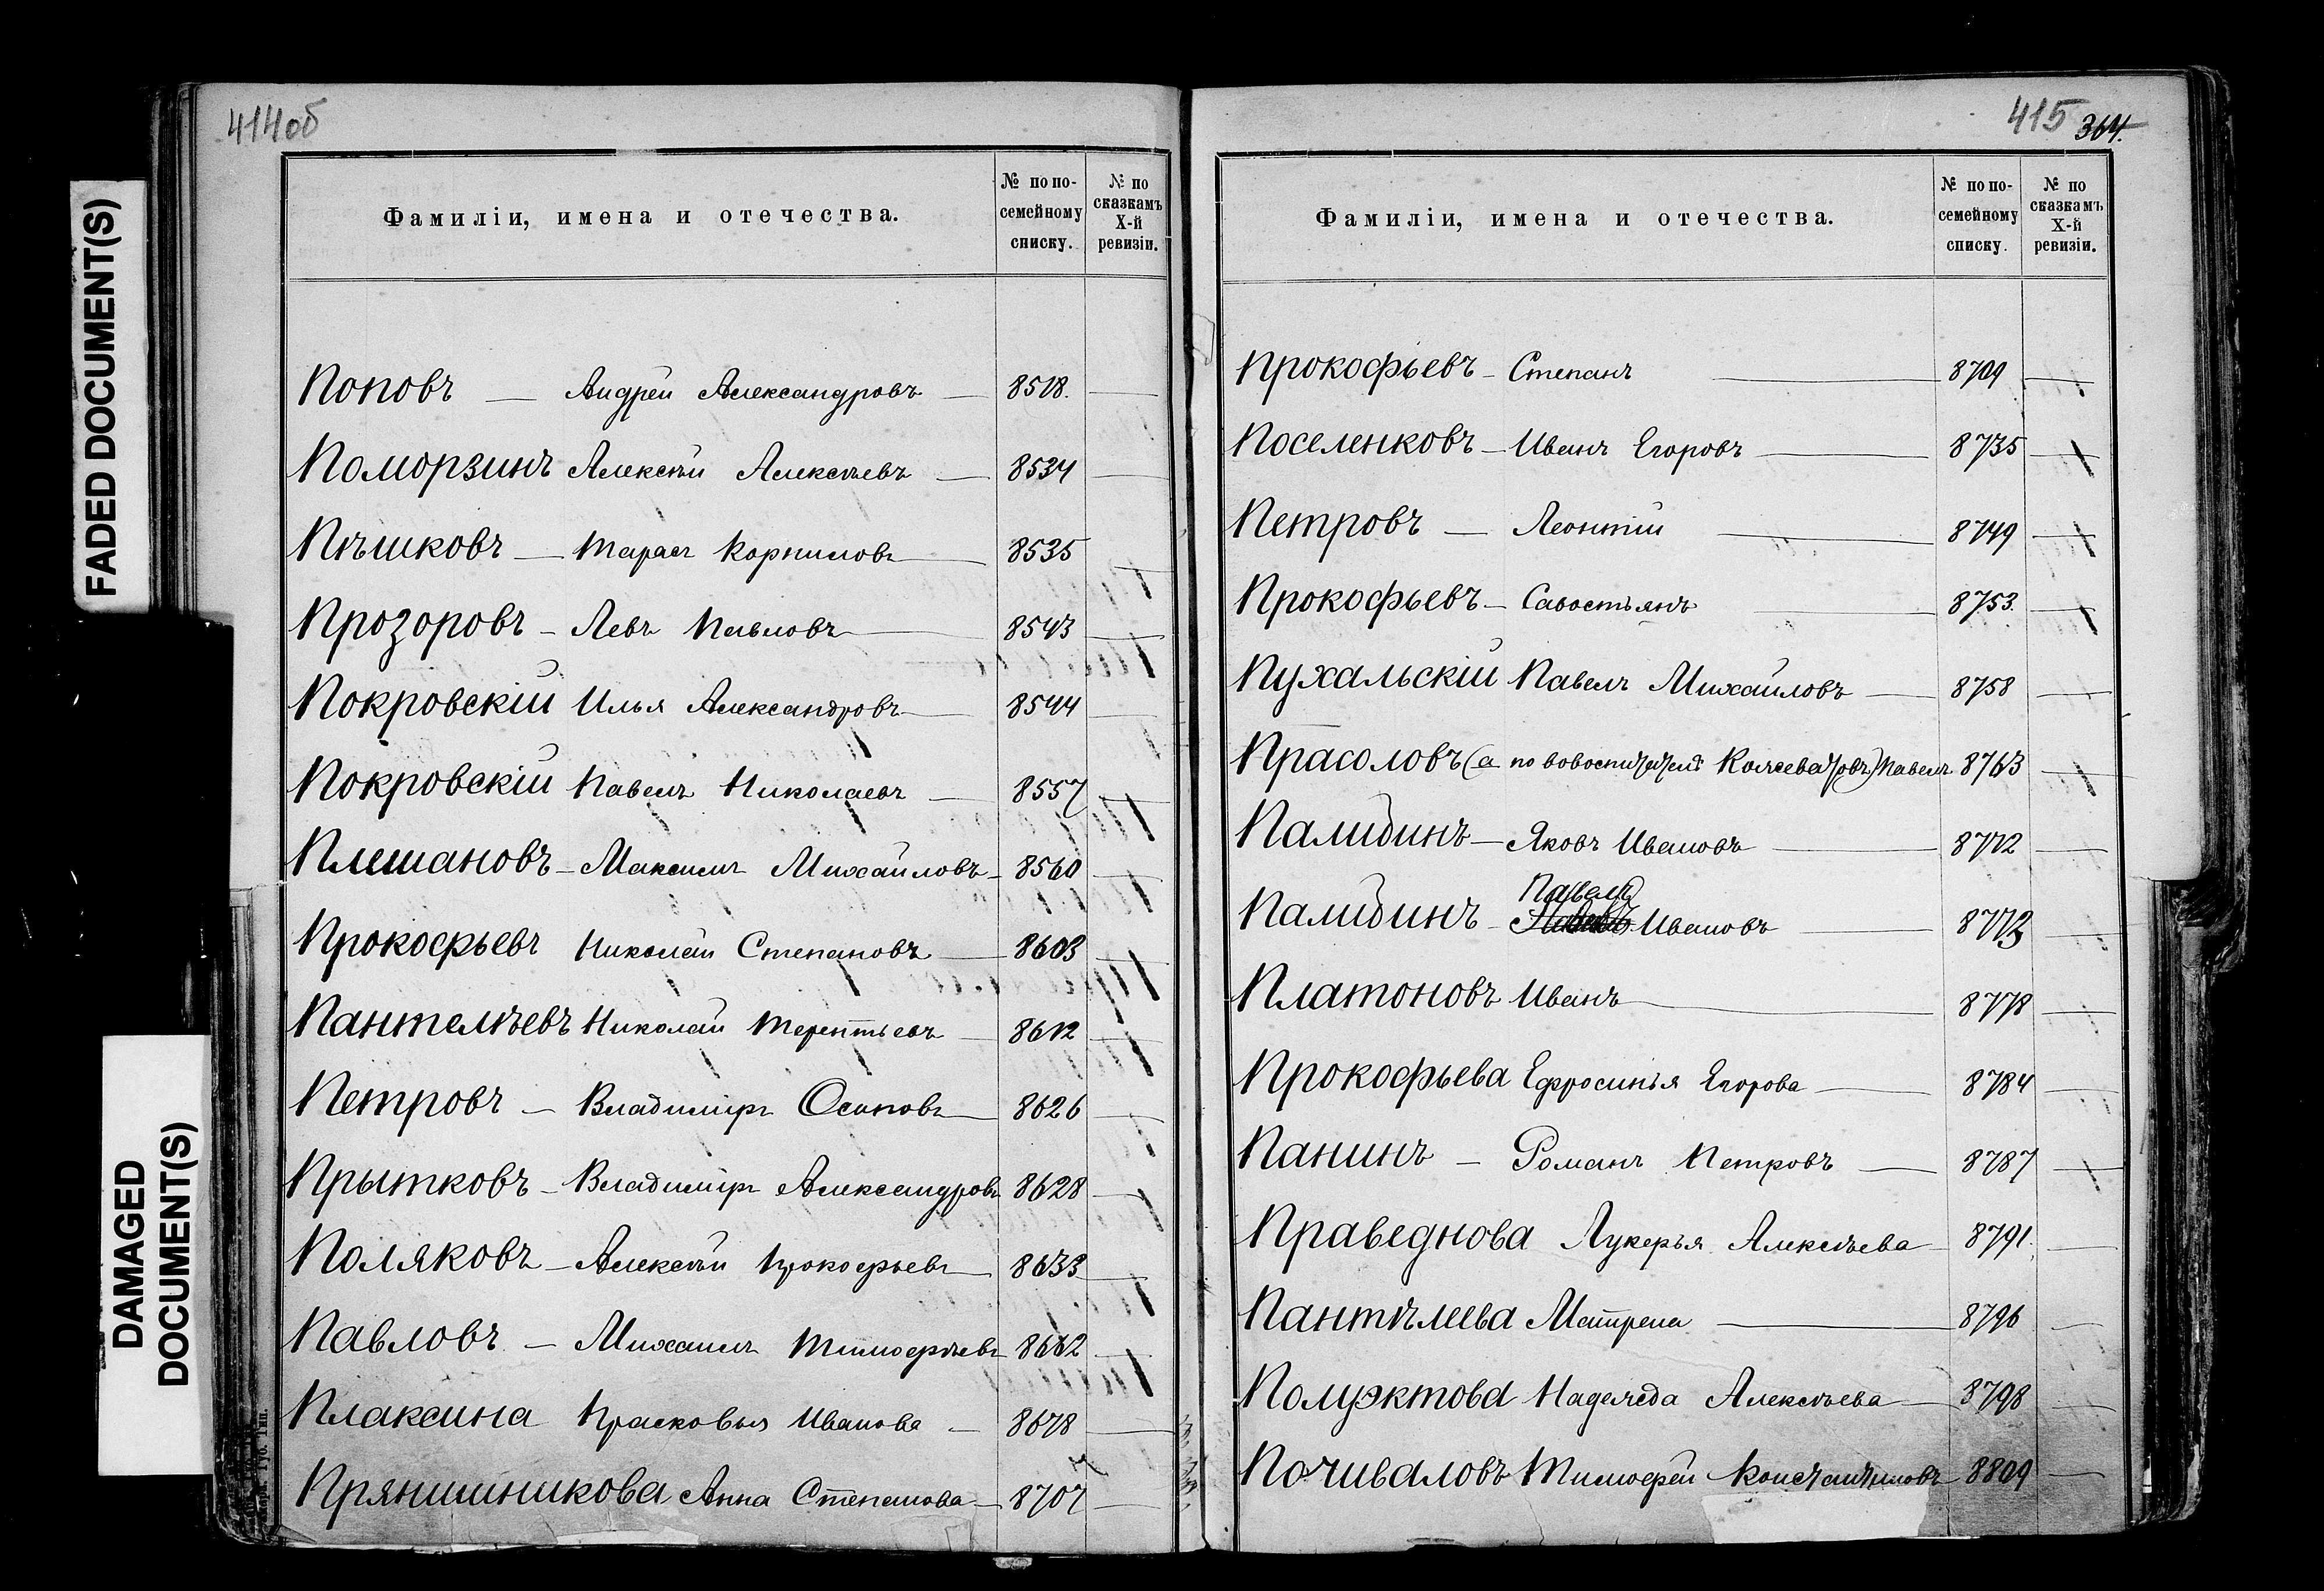 FADED DOCUMENT(S)
DAMAGED
DOCUMENT(S)
414об
Фамиліи, имена и отечества.
№ по по-
семейному
списку.
№ по
сказкамъ
X-й
ревизіи.
Поповъ — Андрей Александровъ — 8518. —
Поморзинъ Алексѣй Алексѣевъ — 8534 —
Пѣшковъ — Тарасъ Корниловъ — 8535 —
Прозоровъ — Левъ Павловъ — 8543 —
Покровскій Илья Александровъ — 8544 —
Покровскій Павелъ Николаевъ — 8557 —
Плешановъ — Максимъ Михайловъ — 8560 —
Прокофьевъ Николай Степановъ — 8603 —
Пантелѣевъ Николай Терентьевъ — 8612 —
Петровъ — Владиміръ Осиповъ — 8626 —
Прытковъ — Владиміръ Александровъ 8628 —
Поляковъ — Алексѣй Прокофьевъ — 8633 —
Павловъ — Михаилъ Тимофѣевъ 8662 —
Плаксина Прасковья Иванова — 8678 —
Прянишникова Анна Степанова — 8707 —
Губ. Тип.
415 364.
Фамиліи, имена и отечества.
№ по по-
семейному
списку.
№ по
сказкамъ
X-й
ревизіи.
Прокофьевъ — Степанъ — 8709 —
Поселенковъ — Иванъ Егоровъ — 8735 —
Петровъ — Леонтій — 8749 —
Прокофьевъ — Савостьянъ — 8753. —
Пухальскій Павелъ Михайловъ — 8758 —
Прасоловъ (а по Павелъ 8763 —
Палидинъ — Яковъ Ивановъ — 8772 —
Павелъ
Палидинъ — Ивановъ — 8773 —
Платоновъ Иванъ — 8778 —
Прокофьева Ефросинья Егорова — 8784 —
Панинъ — Романъ Петровъ — 8787 —
Праведнова Лукерья Алексѣева — 8791. —
Пантѣлеева Матрена — 8796 —
Полуэктова Надежда Алексѣева — 8798 —
Почиваловъ Тимофей Константиновъ — 8809 —